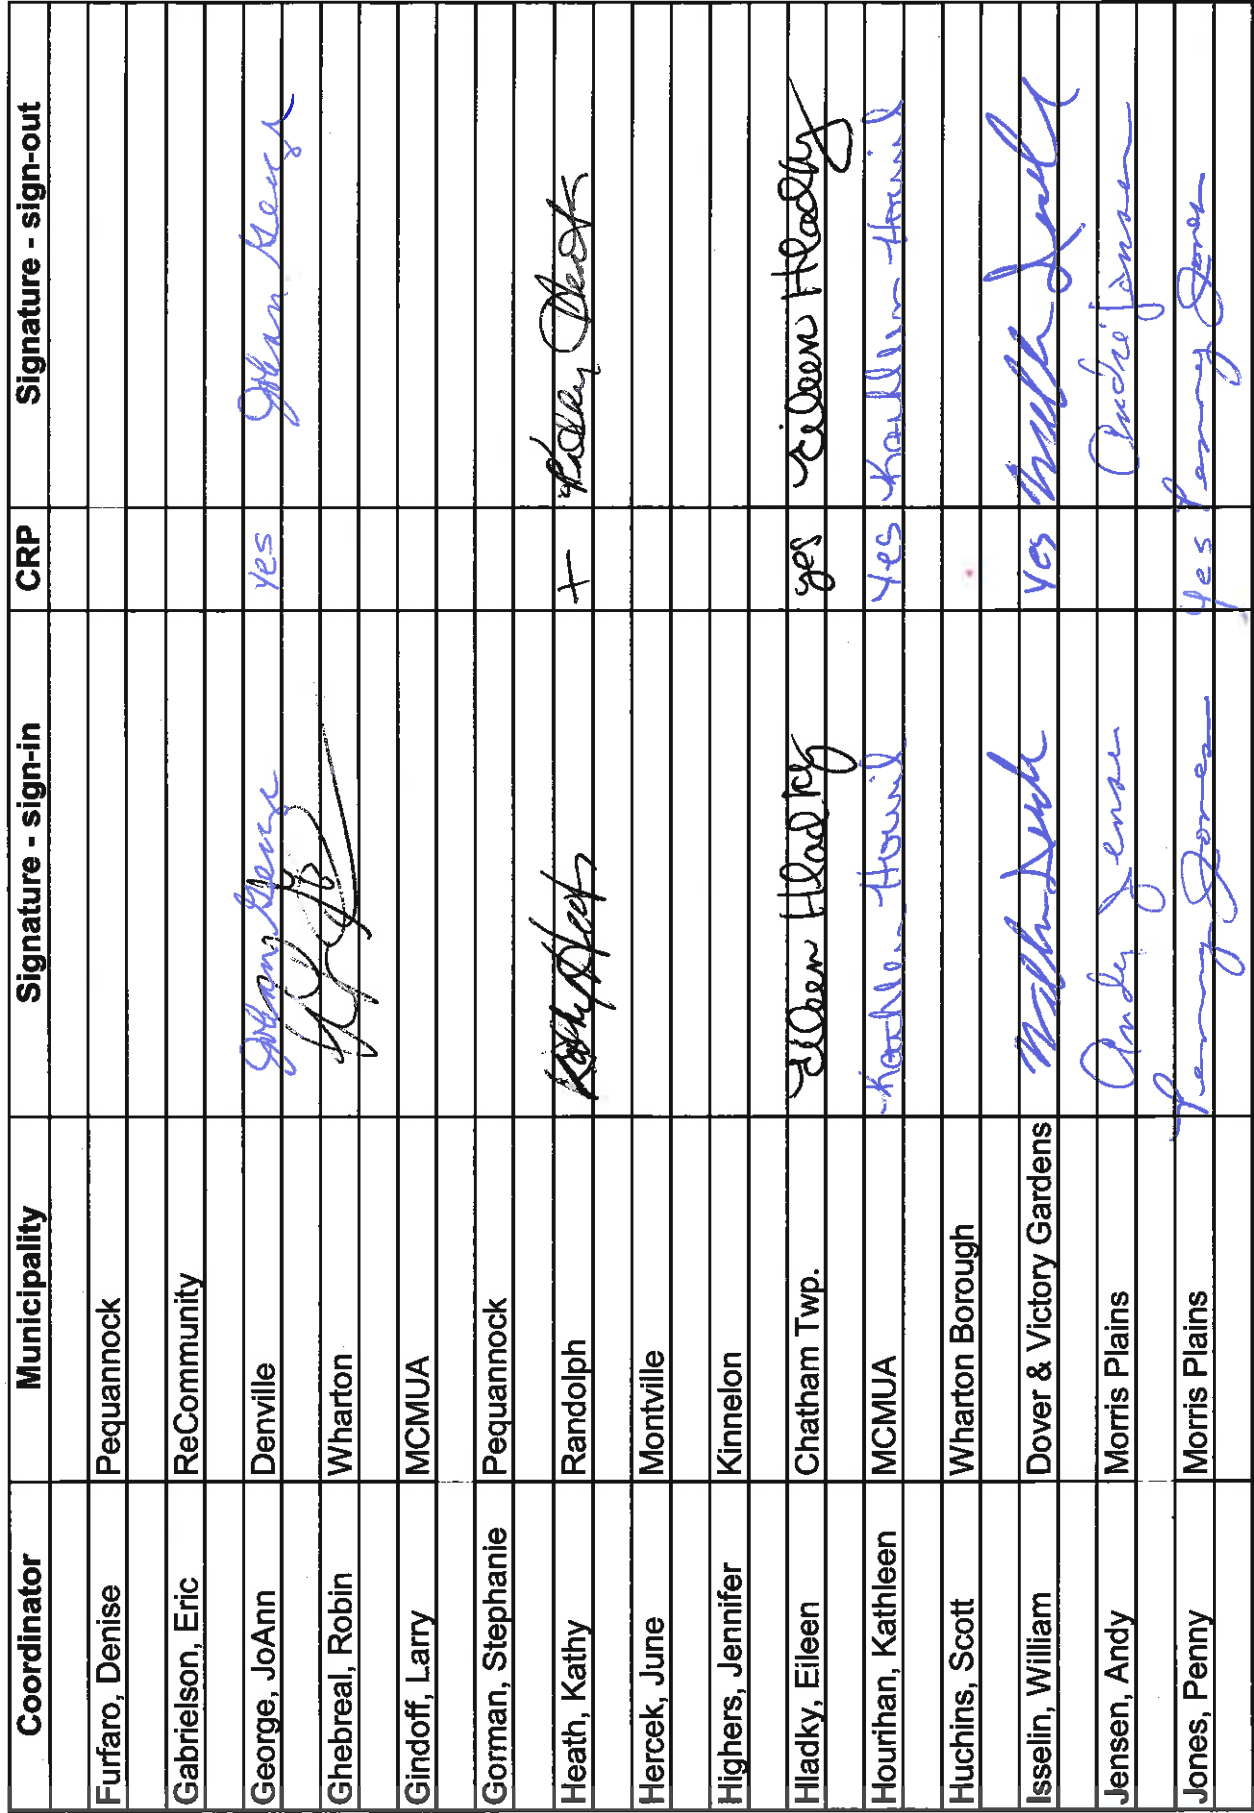 Coordinator Municipality Signature - sign-in CRP Signature - sign-out
Furfaro, Denise Pequannock
Gabrielson, Eric ReCommunity
George, JoAnn Denville JoAnn George yes JoAnn George
Ghebreal, Robin Wharton
Gindoff, Larry MCMUA
Gorman, Stephanie Pequannock
Heath, Kathy Randolph Kathy Heath + Kathy Heath
Hercek, June Montville
Highers, Jennifer Kinnelon
Hladky, Eileen Chatham Twp. Eileen Hladky yes Eileen Hladky
Hourihan, Kathleen MCMUA Kathleen Hourihan Yes Kathleen Hourihan
Huchins, Scott Wharton Borough
Isselin, William Dover & Victory Gardens Yes
Jensen, Andy Morris Plains Andy Jensen
Jones, Penny Morris Plains Penny Jones Yes Penny Jones